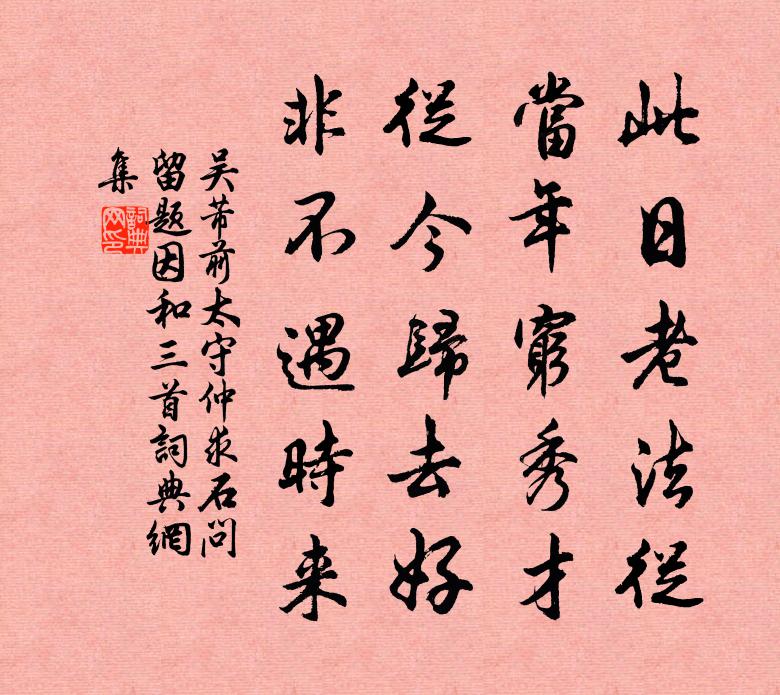 此日老法從
當年窮秀才
從今歸去好
非不遇時来
吴芾前太守仲求石問
留題因和三首詞典網
集
詞典网印